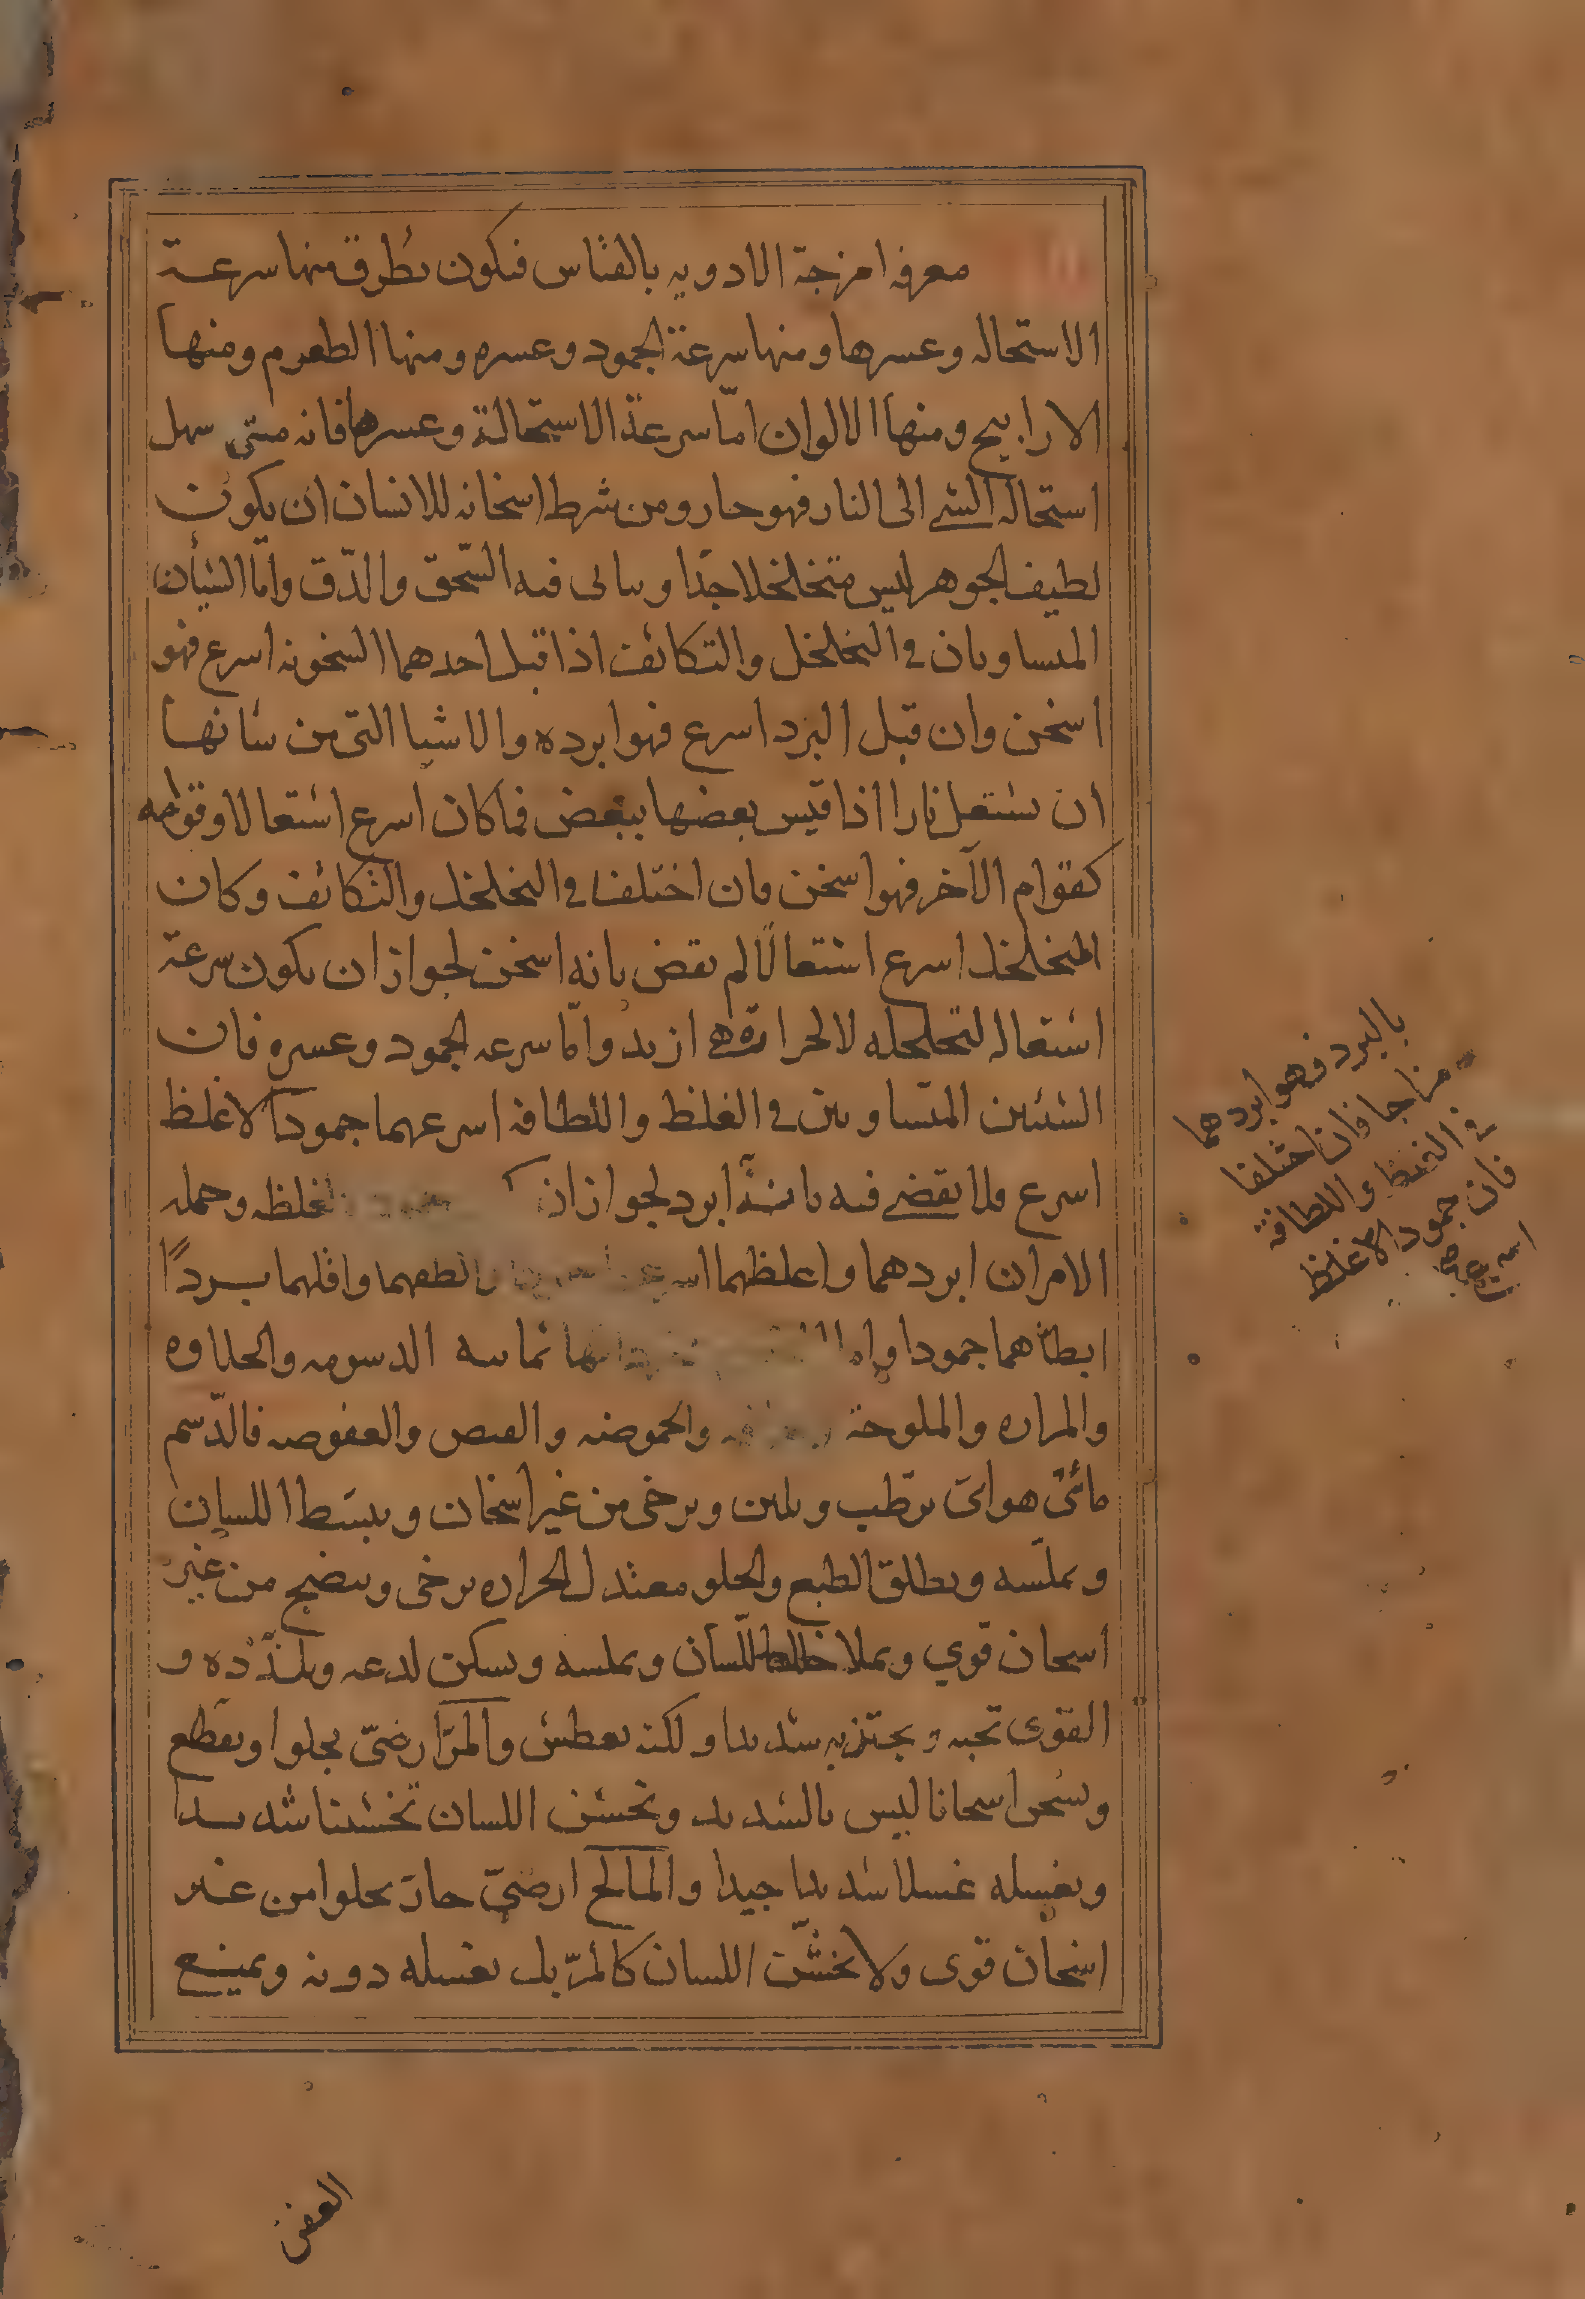 معرفه امزجة الادويه بالقياس فيكون بطرق منها سرعة
الاستحاله وعسرها ومنها سرعة الجمود وعسره ومنها الطعوم ومنها
الاراييح ومنها الالوان امّا سرعة الاستحالة وعسرها فانه متى سهل
استحاله الشي الى النار فهو حار ومن شرط اسخانه للانسان ان يكون
لطيف الجوهر ليس متخلخلا جدّا ويتاتى فيه السّحق والدّق وامّا الشيأن
المتساويان في التخلخل والتكاثف اذا قبل احدهما السخونه اسرع فهو
اسخن وان قبل البرد اسرع فهو ابرده والاشيا التي من شانها
ان تشتعل نارا اذا قيس بعضها ببعض فما كان اسرع اشتعالا وقوامه
كقوام الآخر فهو اسخن فان اختلفا في التخلخل والتكاثف وكان
المتخلخل اسرع اشتعالًا لم يقض بانه اسخن لجواز ان يكون سرعة
اشتعاله لتخلخله لا لحرارة هي ازيد وامّا سرعه الجمود وعسره فان
الشيئين المتساويين في الغلظ واللطافه اسرعهما جمودا الاغلظ
اسرع فلا يقضي فيه بانه ابرد لجواز ان لغلظه وجمله
الامران ابردهما واغلظهما والطفهما واقلهما بردًا
ابطأهما جمودا واما ثمانيه الدسومه والحلاوه
والمراره والملوحة والحموضه والقبص والعفوصه فالدّسم
مائىّ هوائىّ يرطّب ويلين ويرخى من غير اسخان ويبسط اللسان
ويملّسه ويطلق الطبع والحلو معتدل الحراره يرخى وينضج من غير
اسخان قوي ويملا خلل اللّسان ويملسه ويسكن لدعه ويلذّذه و
القوى تحبه وتجتذبه شديدا ولكنه يعطش والمرّ ارضىّ يجلوا ويقطع
ويسخن اسخانا ليس بالشديد ويخشن اللسان تخشينا شديدا
ويغسله غسلا شديدا جيدا والمالح ارضىّ حارّ يجلوا من غير
اسخان قوى ولا يخشّن اللسان كالمرّ بل يغسله دونه ويمنع
بالبرد فهو ابردهما
مزاجا فان اختلفا
في الغلظ واللطافه
فان جمود الاغلظ
اسرعهما
العفن